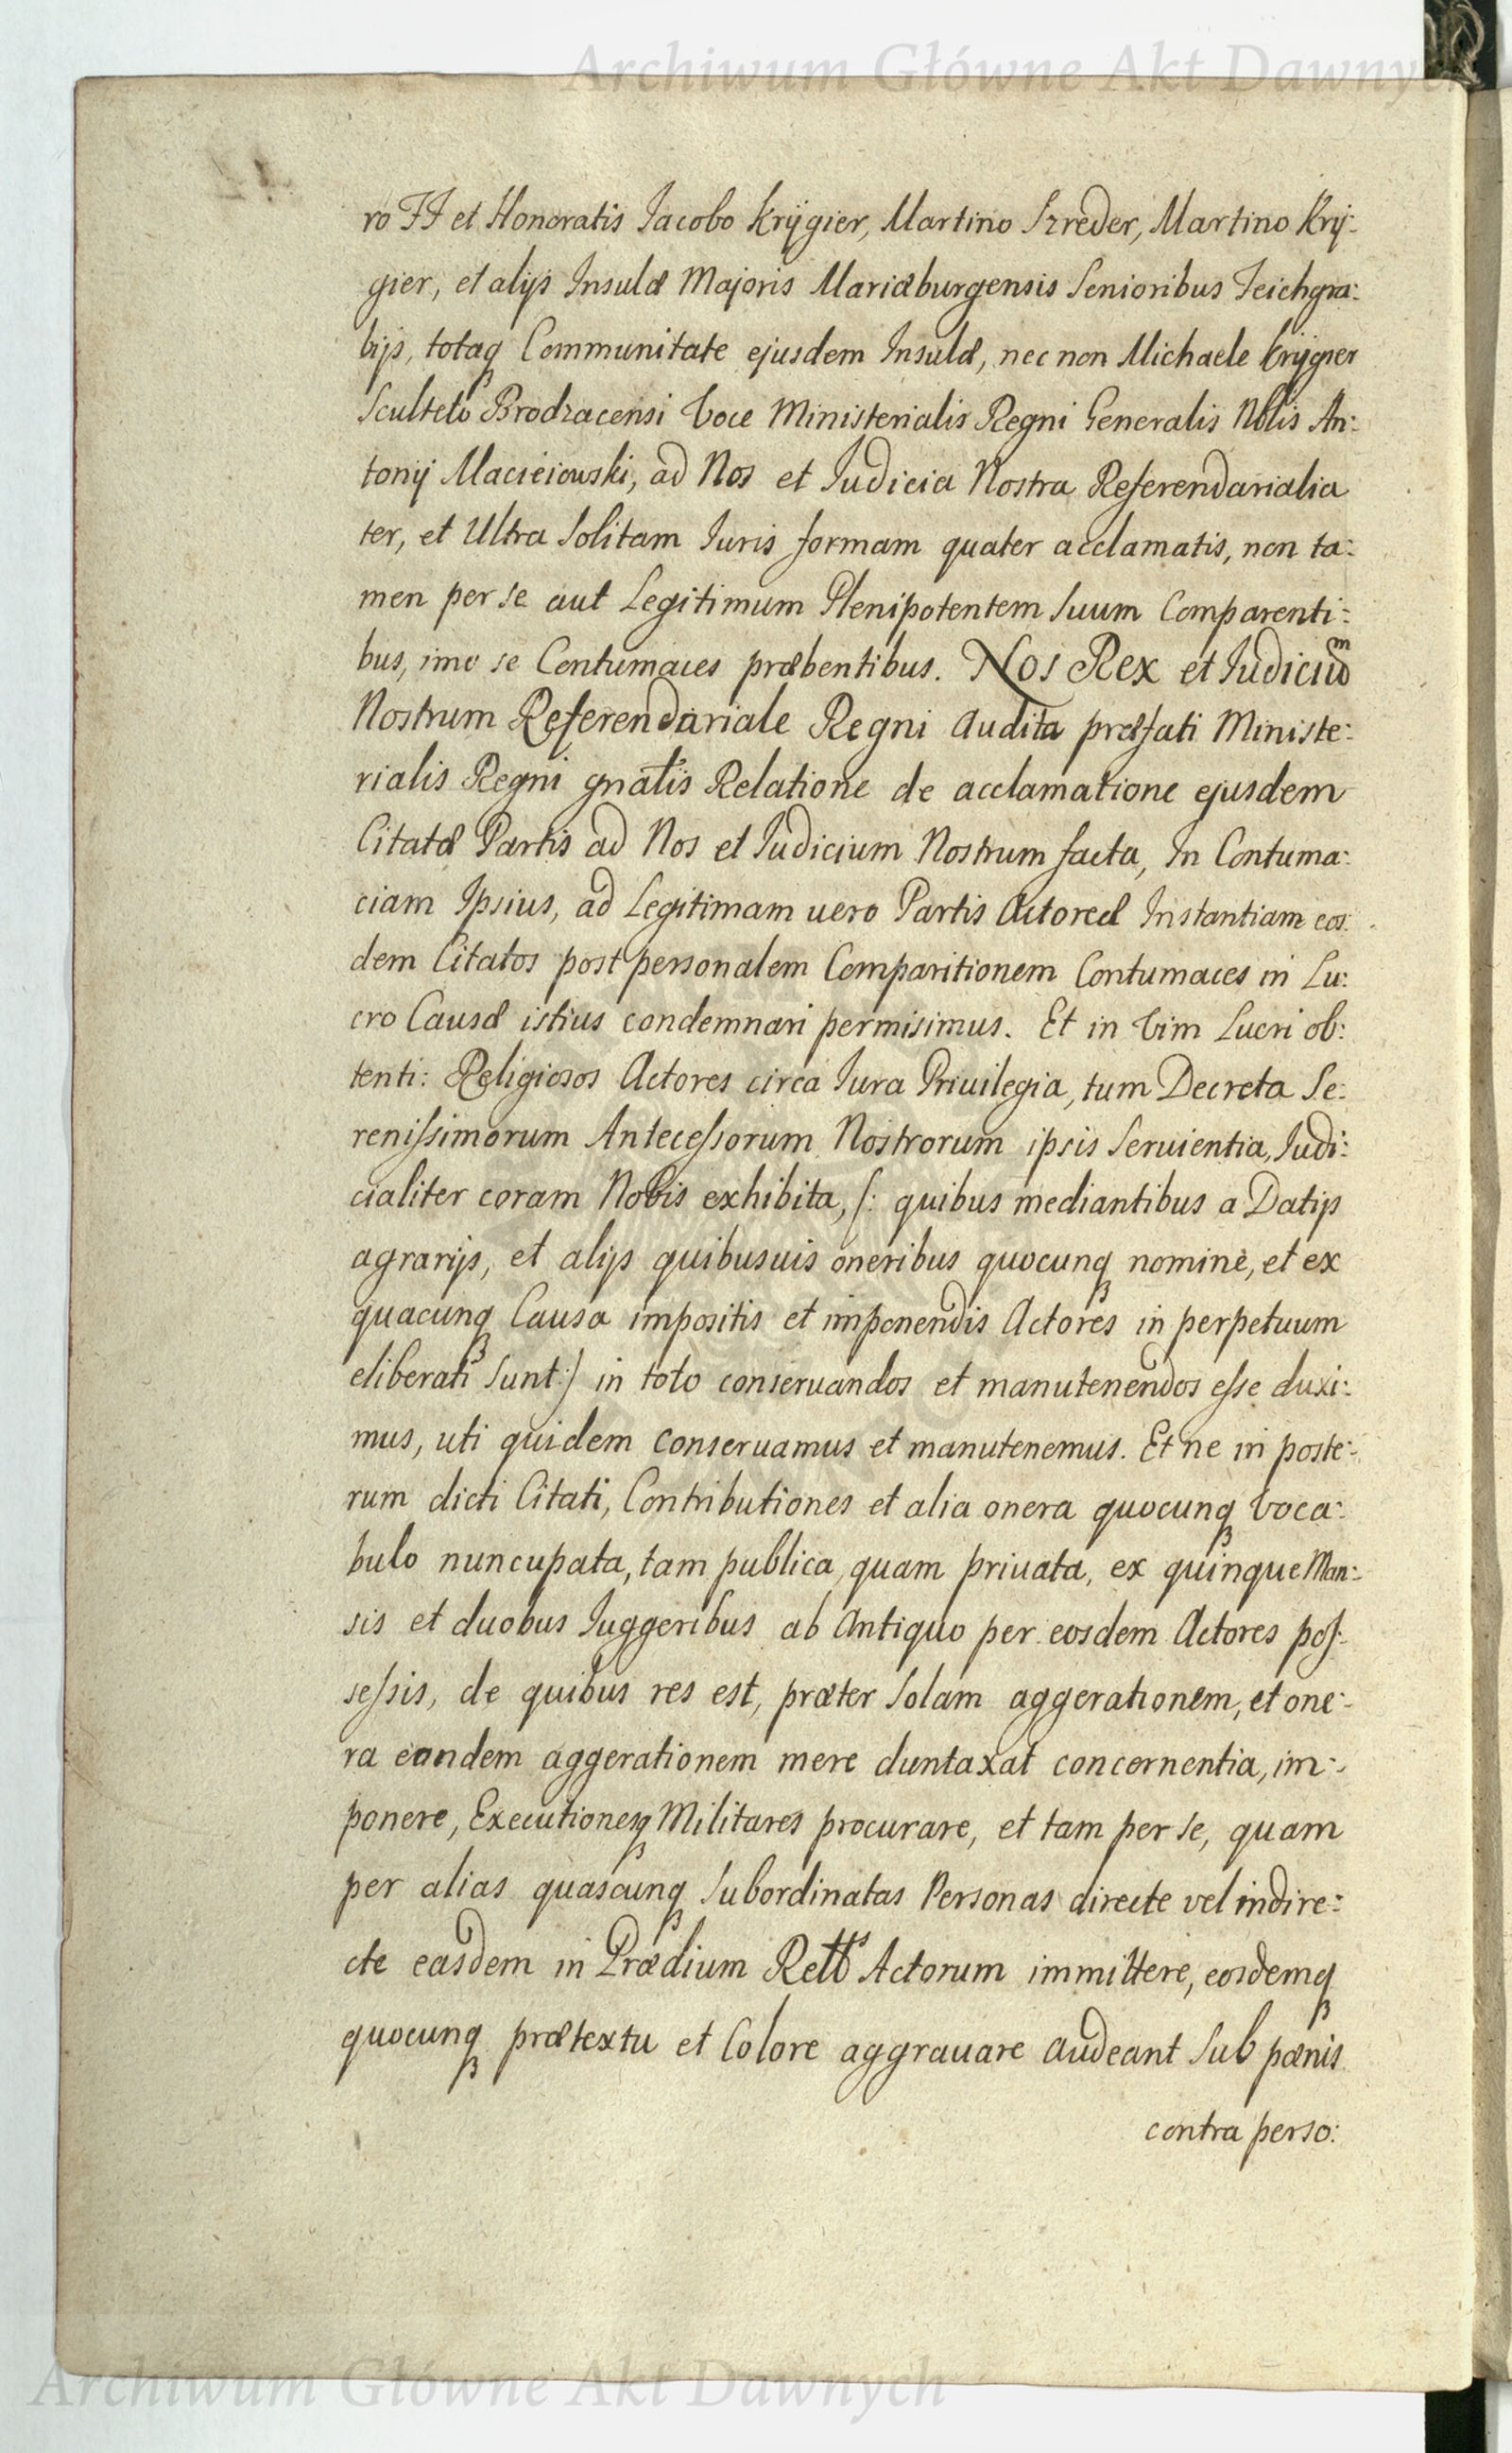 Archiwum Główne Akt Dawnych
ro FF et Honoratis Jacobo Krÿgier, Martino Szreder, Martino Krÿ:
gier, et alijs Insulæ Majoris Mariæburgensis Senioribus Teichgra:
bijs, totaq Communitate ejusdem Insulæ, nec non Michaele Krÿgier
Sculteto Brodzacensi Voce Ministerialis Regni Generalis Nblis An:
tonij Macieiowski, ad Nos et Judicia Nostra Referendarialia
ter, et Ultra Solitam Juris formam quater acclamatis, non ta:
men per se aut Legitimum Plenipotentem Suum Comparenti:
bus, imo se Contumaces præbentibus. Nos Rex et Judiciũm
Nostrum Referendariale Regni Audita præfati Ministe:
rialis Regni gnãlis Relatione de acclamatione ejusdem
Citatæ Partis ad Nos et Judicium Nostrum facta, In Contuma:
ciam Ipsius, ad Legitimam uero Partis Actoreæ Instantiam eos:
dem Citatos post personalem Comparitionem Contumaces in Lu:
cro Causæ istius condemnari permisimus. Et in Vim Lucri ob:
tenti: Religiosos Actores circa Jura Priuilegia, tum Decreta Se:
renißimorum Anteceßorum Nostrorum ipsis Seruientia, Judi:
cialiter coram Nobis exhibita, /: quibus mediantibus a Datijs
agrarijs, et alijs quibusuis oneribus quocunq nomine, et ex
quacunq Causa impositis et imponendis Actores in perpetuum
eliberati Sunt :/ in toto conseruandos et manutenendos eße duxi:
mus, uti quidem conseruamus et manutenemus. Et ne in poste:
rum dicti Citati, Contributiones et alia onera quocunq Voca:
bulo nuncupata, tam publica, quam priuata, ex quinque Man:
sis et duobus Juggeribus ab Antiquo per eosdem Actores poſ:
seßis, de quibus res est, præter Solam aggerationem, et one:
ra eandem aggerationem mere duntaxat concernentia, im:
ponere, Executionesq Militares procurare, et tam per se, quam
per alias quascunq Subordinatas Personas directe vel indire:
cte easdem in Prædium Actorum immittere, eosdemq
quocunq prætextu et Colore aggrauare audeant Sub pænis
contra perso:
Archiwum Główne Akt Dawnych